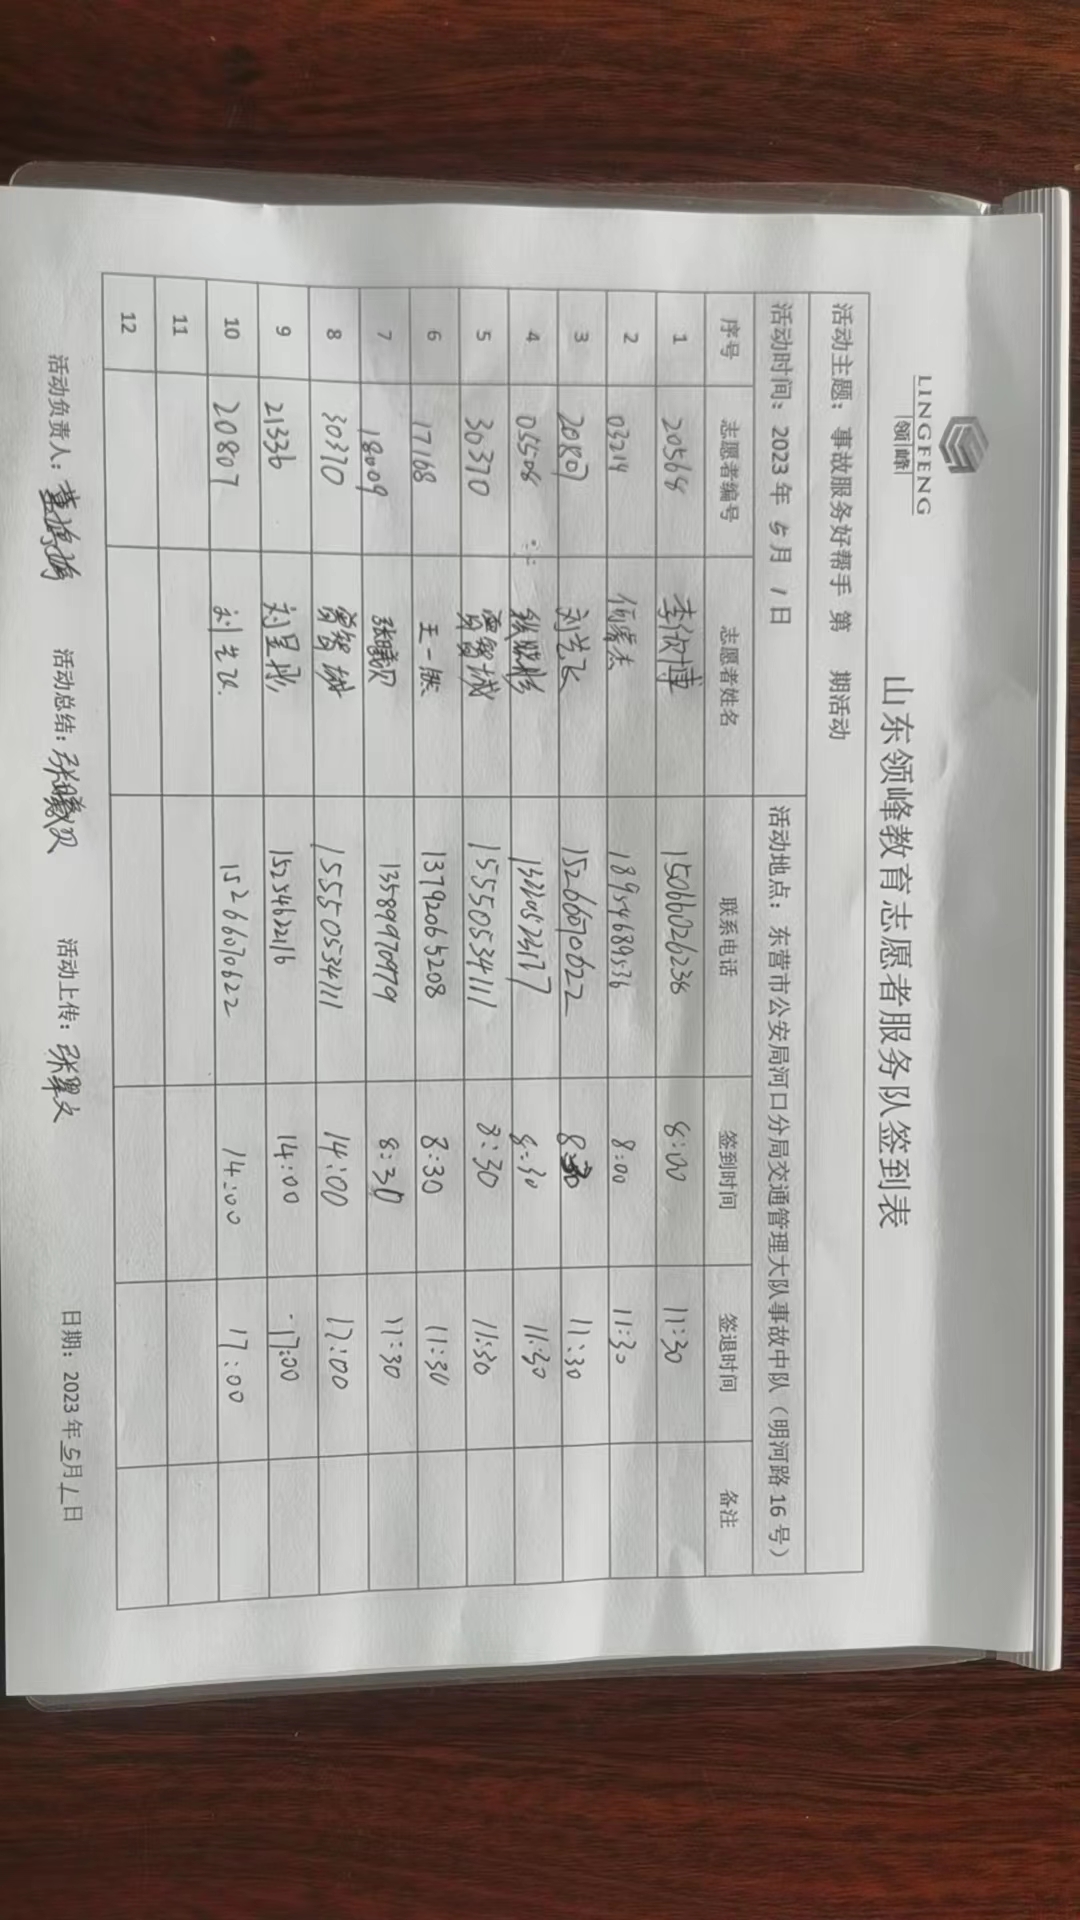 LINGFENG
领峰
山东领峰教育志愿者服务队签到表
活动主题：事故服务好帮手 第 期活动
活动时间：2023年 5月 1日 活动地点：东营市公安局河口分局交通管理大队事故中队（明河路16号）
序号 志愿者编号 志愿者姓名 联系电话 签到时间 签退时间 备注
1 20568 李欣博 15066026238 8:00 11:30
2 03214 何睿杰 18954689536 8:00 11:30
3 20807 刘芸飞 15266670622 8:30 11:30
4 05508 8:30 11:30
5 30370 曹智城 15550534111 8:30 11:30
6 17168 王一然 13792065208 8:30 11:30
7 18009 张曦贝 13589970979 8:30 11:30
8 30370 曹智城 15550534111 14:00 17:00
9 21336 刘昱彤 15254622116 14:00 17:00
10 20807 刘芸飞 15266670622 14:00 17:00
11
12
活动负责人： 活动总结：张曦贝 活动上传：张翠文 日期：2023年5月1日